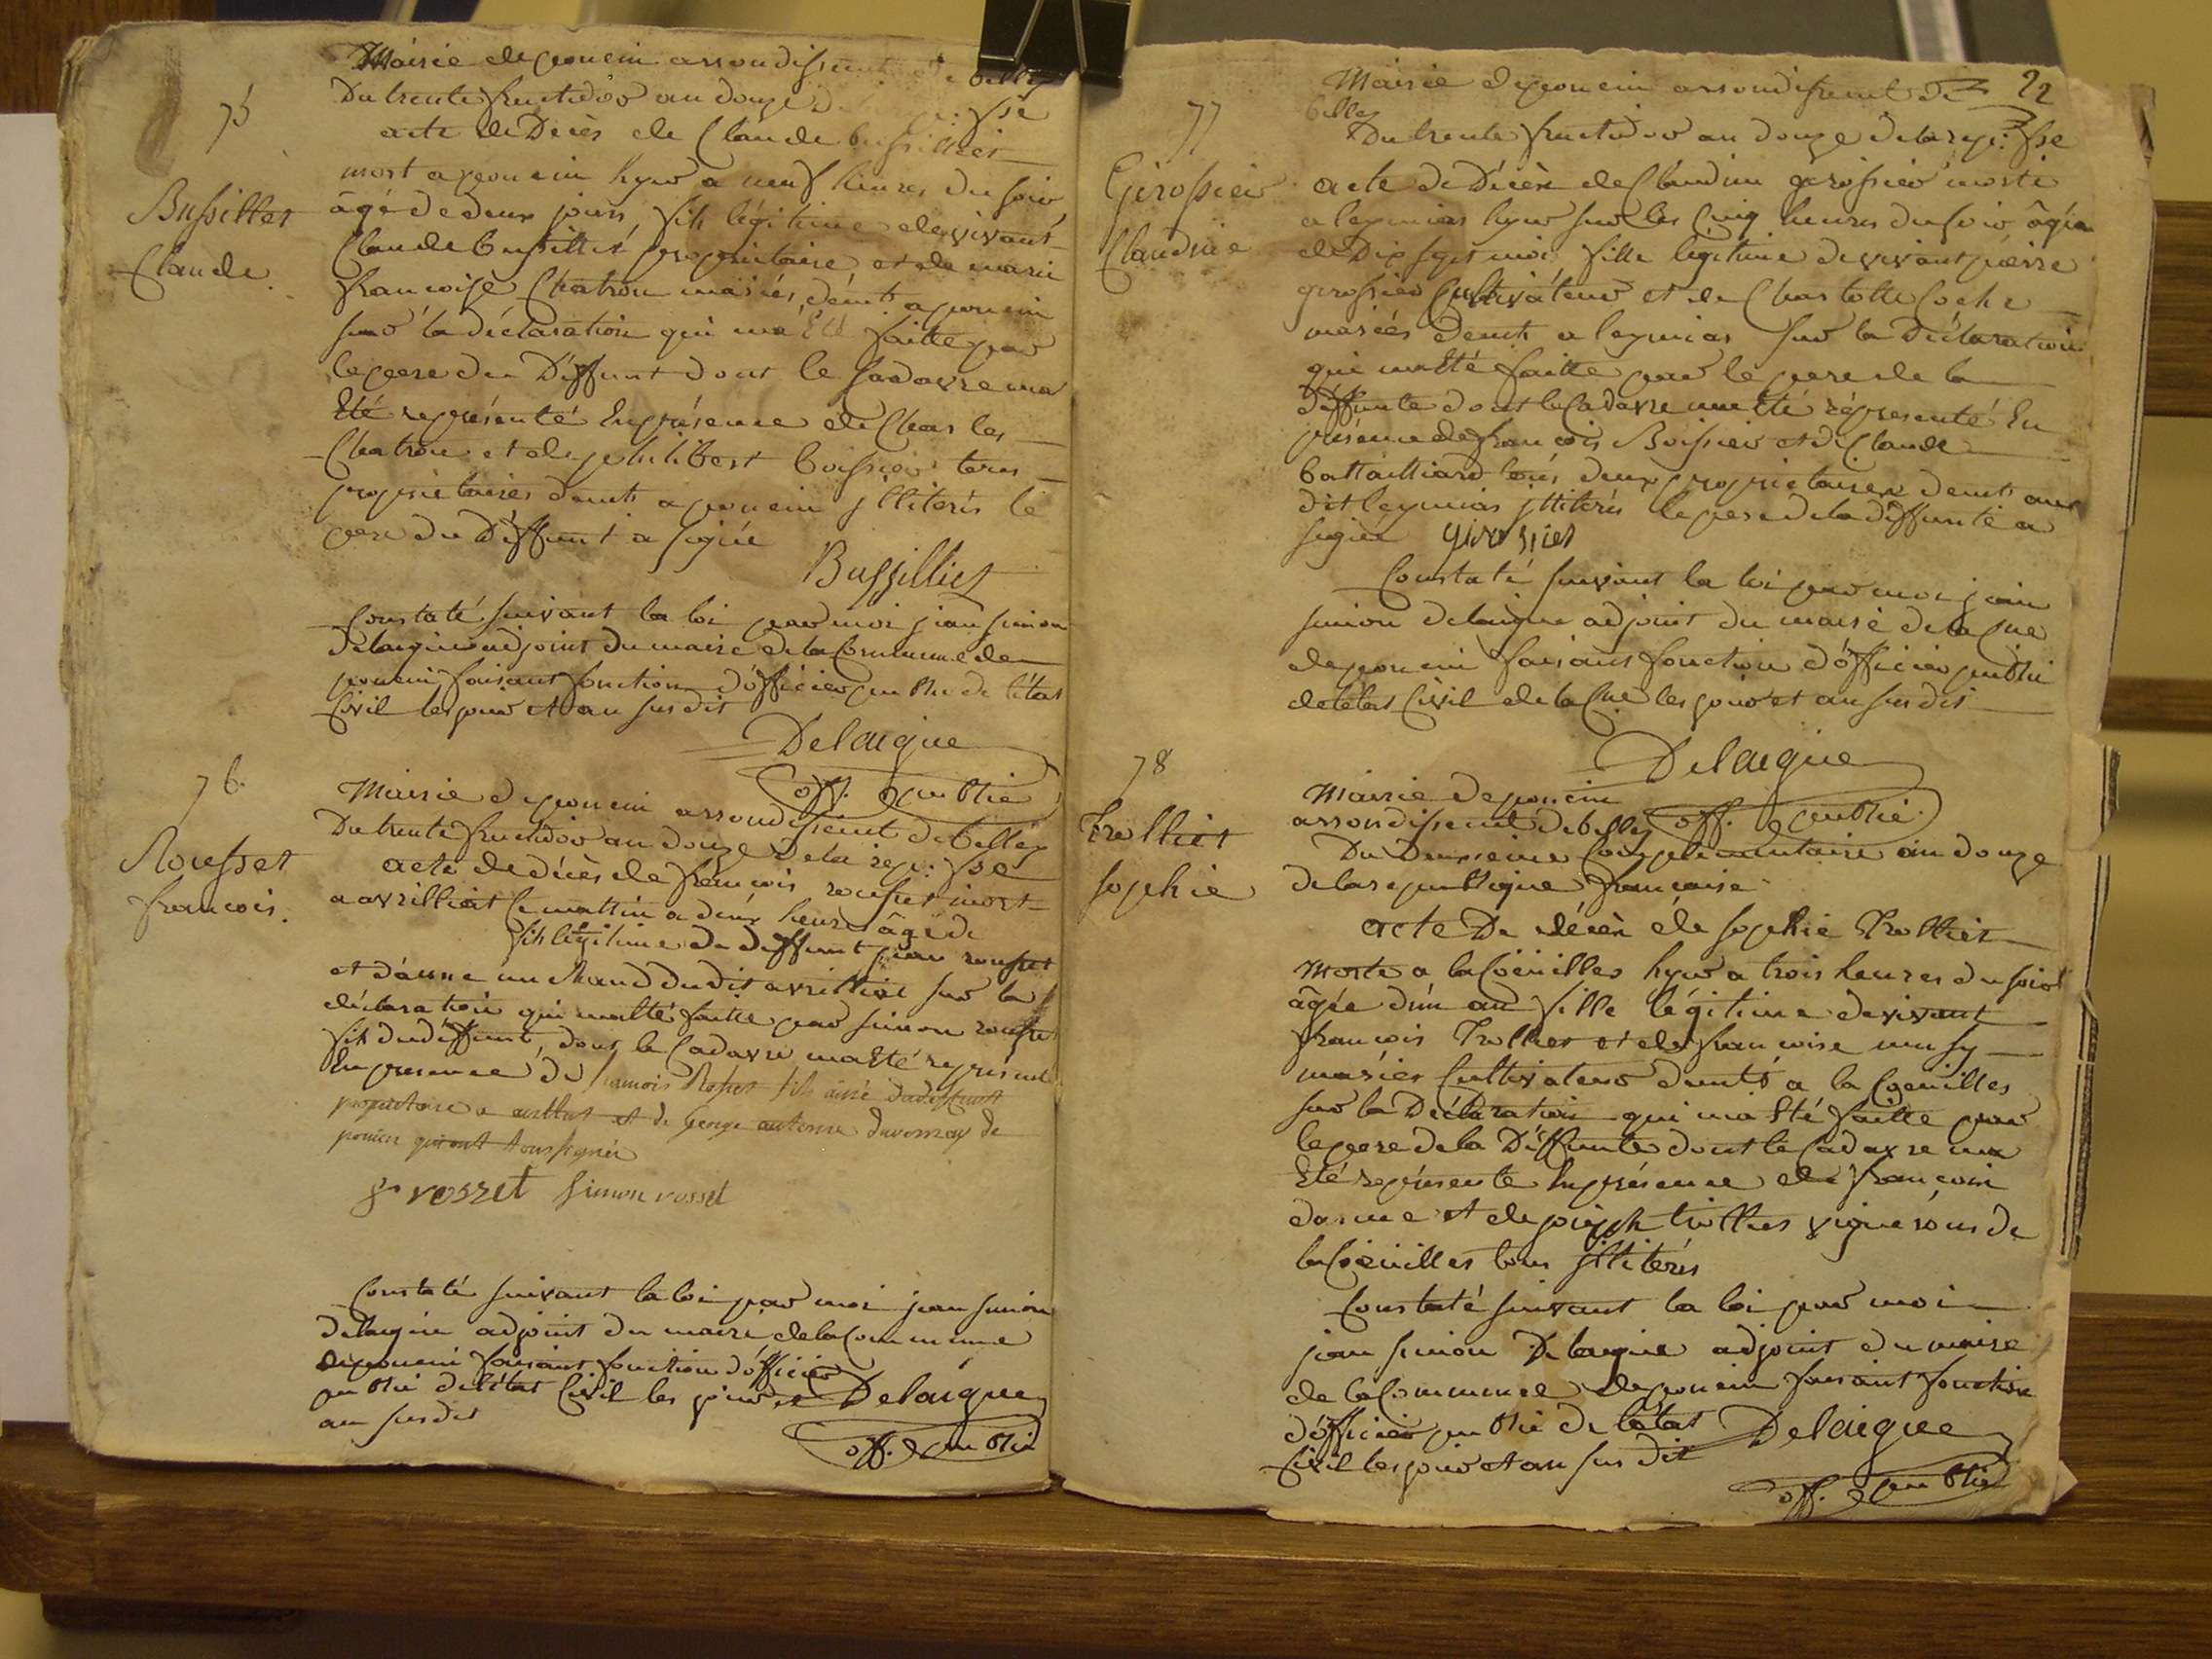 75
Bussillet
Claude.
Mairie de poncin arrondissment de belley
Du trente fructidor an douze De la rep: fse
acte de Décès de Claude bussilliet
mort a poncin hyer a neuf heures du soir
âgé de deux jours fils légitime de vivant
Claude bussilliet proprietaire et de marie
francoise Chatron mariés, demts a poncin
sur la déclaration qui m'a Eté faitte par
le pere du Déffunt dont le Cadavre ma
Eté représenté En présence de Charles
Chatron et de philibert boissier tous
proprietaires demts a poncin jlliterés le
pere du Déffunt a signé
Bussilliet
Constaté suivant la loi par moi jean simon
Delaigue adjoint du maire de la Commune de
poncin faisant fonction d'officier public de l'état
Civil les jour et an susdit
Delaigue
off. public
76
Rousset
francois.
Mairie de poncin arrondissement de belley
Du trente fructidor an douze de la rep: fse
acte de décès de francois rousset mort
a avrilliat Ce mattin a deux heures âgé de
fils légitime de deffunt jean rousset
et d'anne michaud dudit avrilliat sur la
déclaration qui m'a Eté faitte par simon rousset
fils du déffunt, dont le Cadavre ma Eté représenté
En presence de francois Rosset fils ainé dudeffunt
proprietaire a avrillat et de George antoine duvernay de
poncin qui ont tous signés
fr rosset simon rosset
Constaté suivant la loi par moi jean simon
delaigue adjoint du maire de la Commune
de poncin faisant fonction d'officier
public de l'état Civil les jour et Delaigue
an susdit
off. public
22
77
Girossier
Claudine
Mairie de poncin arrondissement de
belley
Du trente fructidor an douze de la rep: fse
acte de Décès de Claudine girossier morte
a leymiat hyer sur les Cinq heures du soir âgée
de Dix sept mois fille légitime de vivant pierre
girossier Cultivateur et de Charlotte Coche
mariés demts a leymiat sur la Déclaration
qui ma Eté faitte par le pere de la
déffunte dont le Cadavre ma Eté représenté En
présence de francois Boissier et de Claude
battailliard tous deux proprietaires demts au
dit leymiat jlliterés le pere de la déffunte a
signé girossier
Constaté suivant la loi par moi jean
simon delaigue adjoint du maire de la Cne
de poncin faisant fonction d'officier public
de létat Civil de la Cne les jour et an susdit
Delaigue
off. public
78
Trolliet
sophie
Mairie de poncin
arrondissement de belley
Du Deuxieme Complementaire an douze
de la republique francaise
acte De décès de sophie Trolliet
Morte a la Coeuilles hyer a trois heures du soir
âgée d'un an fille légitime de vivant
francois Trolliet et de francoise musy
mariés Cultivateur demts a la Coeuilles
sur la Déclaration qui ma Eté faitte par
le pere de la Déffunte dont le Cadavre ma
Eté représente En présence de francois
darme et de joseph trolliet vignerons de
la Coeuilles tous jlliterés
Constaté suivant la loi par moi
jean simon Delaigue adjoint du maire
de la Commune de poncin faisant fonction
d'officier public de létat Delaigue
Civil les jour et an susdit
off. public